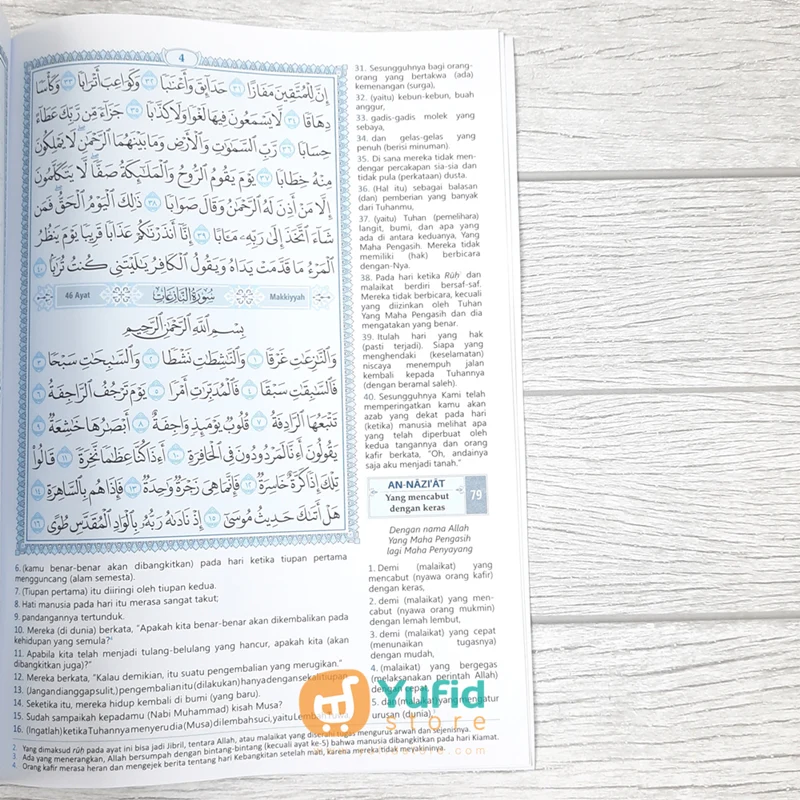 4
إِنَّ لِلْمُتَّقِينَ مَفَازًا ٣١ حَدَآئِقَ وَأَعْنَٰبًا ٣٢ وَكَوَاعِبَ أَتْرَابًا ٣٣ وَكَأْسًا
دِهَاقًا ٣٤ لَّا يَسْمَعُونَ فِيهَا لَغْوًا وَلَا كِذَّٰبًا ٣٥ جَزَآءً مِّن رَّبِّكَ عَطَآءً
حِسَابًا ٣٦ رَّبِّ ٱلسَّمَٰوَٰتِ وَٱلْأَرْضِ وَمَا بَيْنَهُمَا ٱلرَّحْمَٰنِ ۖ لَا يَمْلِكُونَ
مِنْهُ خِطَابًا ٣٧ يَوْمَ يَقُومُ ٱلرُّوحُ وَٱلْمَلَٰٓئِكَةُ صَفًّا ۖ لَّا يَتَكَلَّمُونَ
إِلَّا مَنْ أَذِنَ لَهُ ٱلرَّحْمَٰنُ وَقَالَ صَوَابًا ٣٨ ذَٰلِكَ ٱلْيَوْمُ ٱلْحَقُّ ۖ فَمَن
شَآءَ ٱتَّخَذَ إِلَىٰ رَبِّهِۦ مَـَٔابًا ٣٩ إِنَّآ أَنذَرْنَٰكُمْ عَذَابًا قَرِيبًا يَوْمَ يَنظُرُ
ٱلْمَرْءُ مَا قَدَّمَتْ يَدَاهُ وَيَقُولُ ٱلْكَافِرُ يَٰلَيْتَنِى كُنتُ تُرَٰبًۢا ٤٠
46 Ayat سُورَةُ النَّازِعَاتِ Makkiyyah
بِسْمِ ٱللَّهِ ٱلرَّحْمَٰنِ ٱلرَّحِيمِ
وَٱلنَّٰزِعَٰتِ غَرْقًا ١ وَٱلنَّٰشِطَٰتِ نَشْطًا ٢ وَٱلسَّٰبِحَٰتِ سَبْحًا ٣
فَٱلسَّٰبِقَٰتِ سَبْقًا ٤ فَٱلْمُدَبِّرَٰتِ أَمْرًا ٥ يَوْمَ تَرْجُفُ ٱلرَّاجِفَةُ ٦
تَتْبَعُهَا ٱلرَّادِفَةُ ٧ قُلُوبٌ يَوْمَئِذٍ وَاجِفَةٌ ٨ أَبْصَٰرُهَا خَٰشِعَةٌ ٩
يَقُولُونَ أَءِنَّا لَمَرْدُودُونَ فِى ٱلْحَافِرَةِ ١٠ أَءِذَا كُنَّا عِظَٰمًا نَّخِرَةً ١١ قَالُوا۟
تِلْكَ إِذًا كَرَّةٌ خَاسِرَةٌ ١٢ فَإِنَّمَا هِىَ زَجْرَةٌ وَٰحِدَةٌ ١٣ فَإِذَا هُم بِٱلسَّاهِرَةِ ١٤
هَلْ أَتَىٰكَ حَدِيثُ مُوسَىٰٓ ١٥ إِذْ نَادَىٰهُ رَبُّهُۥ بِٱلْوَادِ ٱلْمُقَدَّسِ طُوًى ١٦
31. Sesungguhnya bagi orang-
orang yang bertakwa (ada)
kemenangan (surga),
32. (yaitu) kebun-kebun, buah
anggur,
33. gadis-gadis molek yang
sebaya,
34. dan gelas-gelas yang
penuh (berisi minuman).
35. Di sana mereka tidak men-
dengar percakapan sia-sia dan
tidak pula (perkataan) dusta.
36. (Hal itu) sebagai balasan
(dan) pemberian yang banyak
dari Tuhanmu,
37. (yaitu) Tuhan (pemelihara)
langit, bumi, dan apa yang
ada di antara keduanya, Yang
Maha Pengasih. Mereka tidak
memiliki (hak) berbicara
dengan-Nya.
38. Pada hari ketika Rūḥ² dan
malaikat berdiri bersaf-saf.
Mereka tidak berbicara, kecuali
yang diizinkan oleh Tuhan
Yang Maha Pengasih dan dia
mengatakan yang benar.
39. Itulah hari yang hak
(pasti terjadi). Siapa yang
menghendaki (keselamatan)
niscaya menempuh jalan
kembali kepada Tuhannya
(dengan beramal saleh).
40. Sesungguhnya Kami telah
memperingatkan kamu akan
azab yang dekat pada hari
(ketika) manusia melihat apa
yang telah diperbuat oleh
kedua tangannya dan orang
kafir berkata, "Oh, andainya
saja aku menjadi tanah."
AN-NĀZI'ĀT
Yang mencabut
dengan keras
79
Dengan nama Allah
Yang Maha Pengasih
lagi Maha Penyayang
1. Demi (malaikat) yang
mencabut (nyawa orang kafir)
dengan keras,
2. demi (malaikat) yang men-
cabut (nyawa orang mukmin)
dengan lemah lembut,
3. demi (malaikat) yang cepat
(menunaikan tugasnya)
dengan mudah,
4. (malaikat) yang bergegas
(melaksanakan perintah Allah)
5. dan (malaikat) yang mengatur
urusan (dunia),³
6. (kamu benar-benar akan dibangkitkan) pada hari ketika tiupan pertama
mengguncang (alam semesta).
7. (Tiupan pertama) itu diiringi oleh tiupan kedua.
8. Hati manusia pada hari itu merasa sangat takut;
9. pandangannya tertunduk.
10. Mereka (di dunia) berkata, "Apakah kita benar-benar akan dikembalikan pada
kehidupan yang semula?⁴
11. Apabila kita telah menjadi tulang-belulang yang hancur, apakah kita (akan
dibangkitkan juga)?"
12. Mereka berkata, "Kalau demikian, itu suatu pengembalian yang merugikan."
13. (Jangan dianggap sulit,) pengembalian itu (dilakukan) hanya dengan sekali tiupan
14. Seketika itu, mereka hidup kembali di bumi (yang baru).
15. Sudah sampaikah kepadamu (Nabi Muhammad) kisah Musa?
16. (Ingatlah) ketika Tuhannya menyeru dia (Musa) di lembah suci, yaitu Lembah Tuwa
2 Yang dimaksud rūḥ pada ayat ini bisa jadi Jibril, tentara Allah, atau malaikat yang diserahi tugas mengurus arwah dan sejenisnya.
3 Ada yang menerangkan, Allah bersumpah dengan bintang-bintang (kecuali ayat ke-5) bahwa manusia dibangkitkan pada hari Kiamat.
4 Orang kafir merasa heran dan mengejek berita tentang hari Kebangkitan setelah mati, karena mereka tidak meyakininya.
Yufid
store